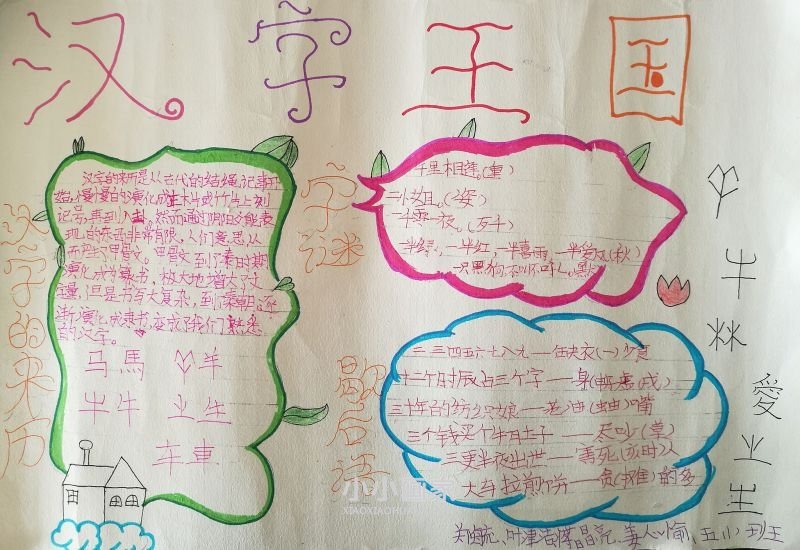 汉字王国
汉字的来历
汉字的来历是从古代的结绳记事开
始,慢慢的演化成在木片或竹片上刻
记号,再到八卦。然而通阴阳又能表
现的东西非常有限,人们意思,从
而产生了甲骨文。甲骨文到了秦时期
演化成了篆书,极大地增大了文
量,但是书写太复杂,到了秦朝逐
渐演化成隶书,变成了我们熟悉
的汉字。
马馬 羊
牛牛 业生
车車
字谜
千里相逢。(重)
二小姐。(姿)
一半绿,一半红,一半喜雨,一半爱风(秋)
一只黑狗,不叫不吼。(默)
歇后语
二三四五六七八九——缺衣(一)少食
十二个时辰占三个字——身(申)虚(戌)
三十年的纺织娘——老油(蚰)嘴
三个钱买个牛肚子——尽吵(草)
三更半夜出世——害死(亥时)人
大车拉煎饼——贪(摊)的多
牛
林
愛
业
生
小小画家
XIAOXIAOHUA